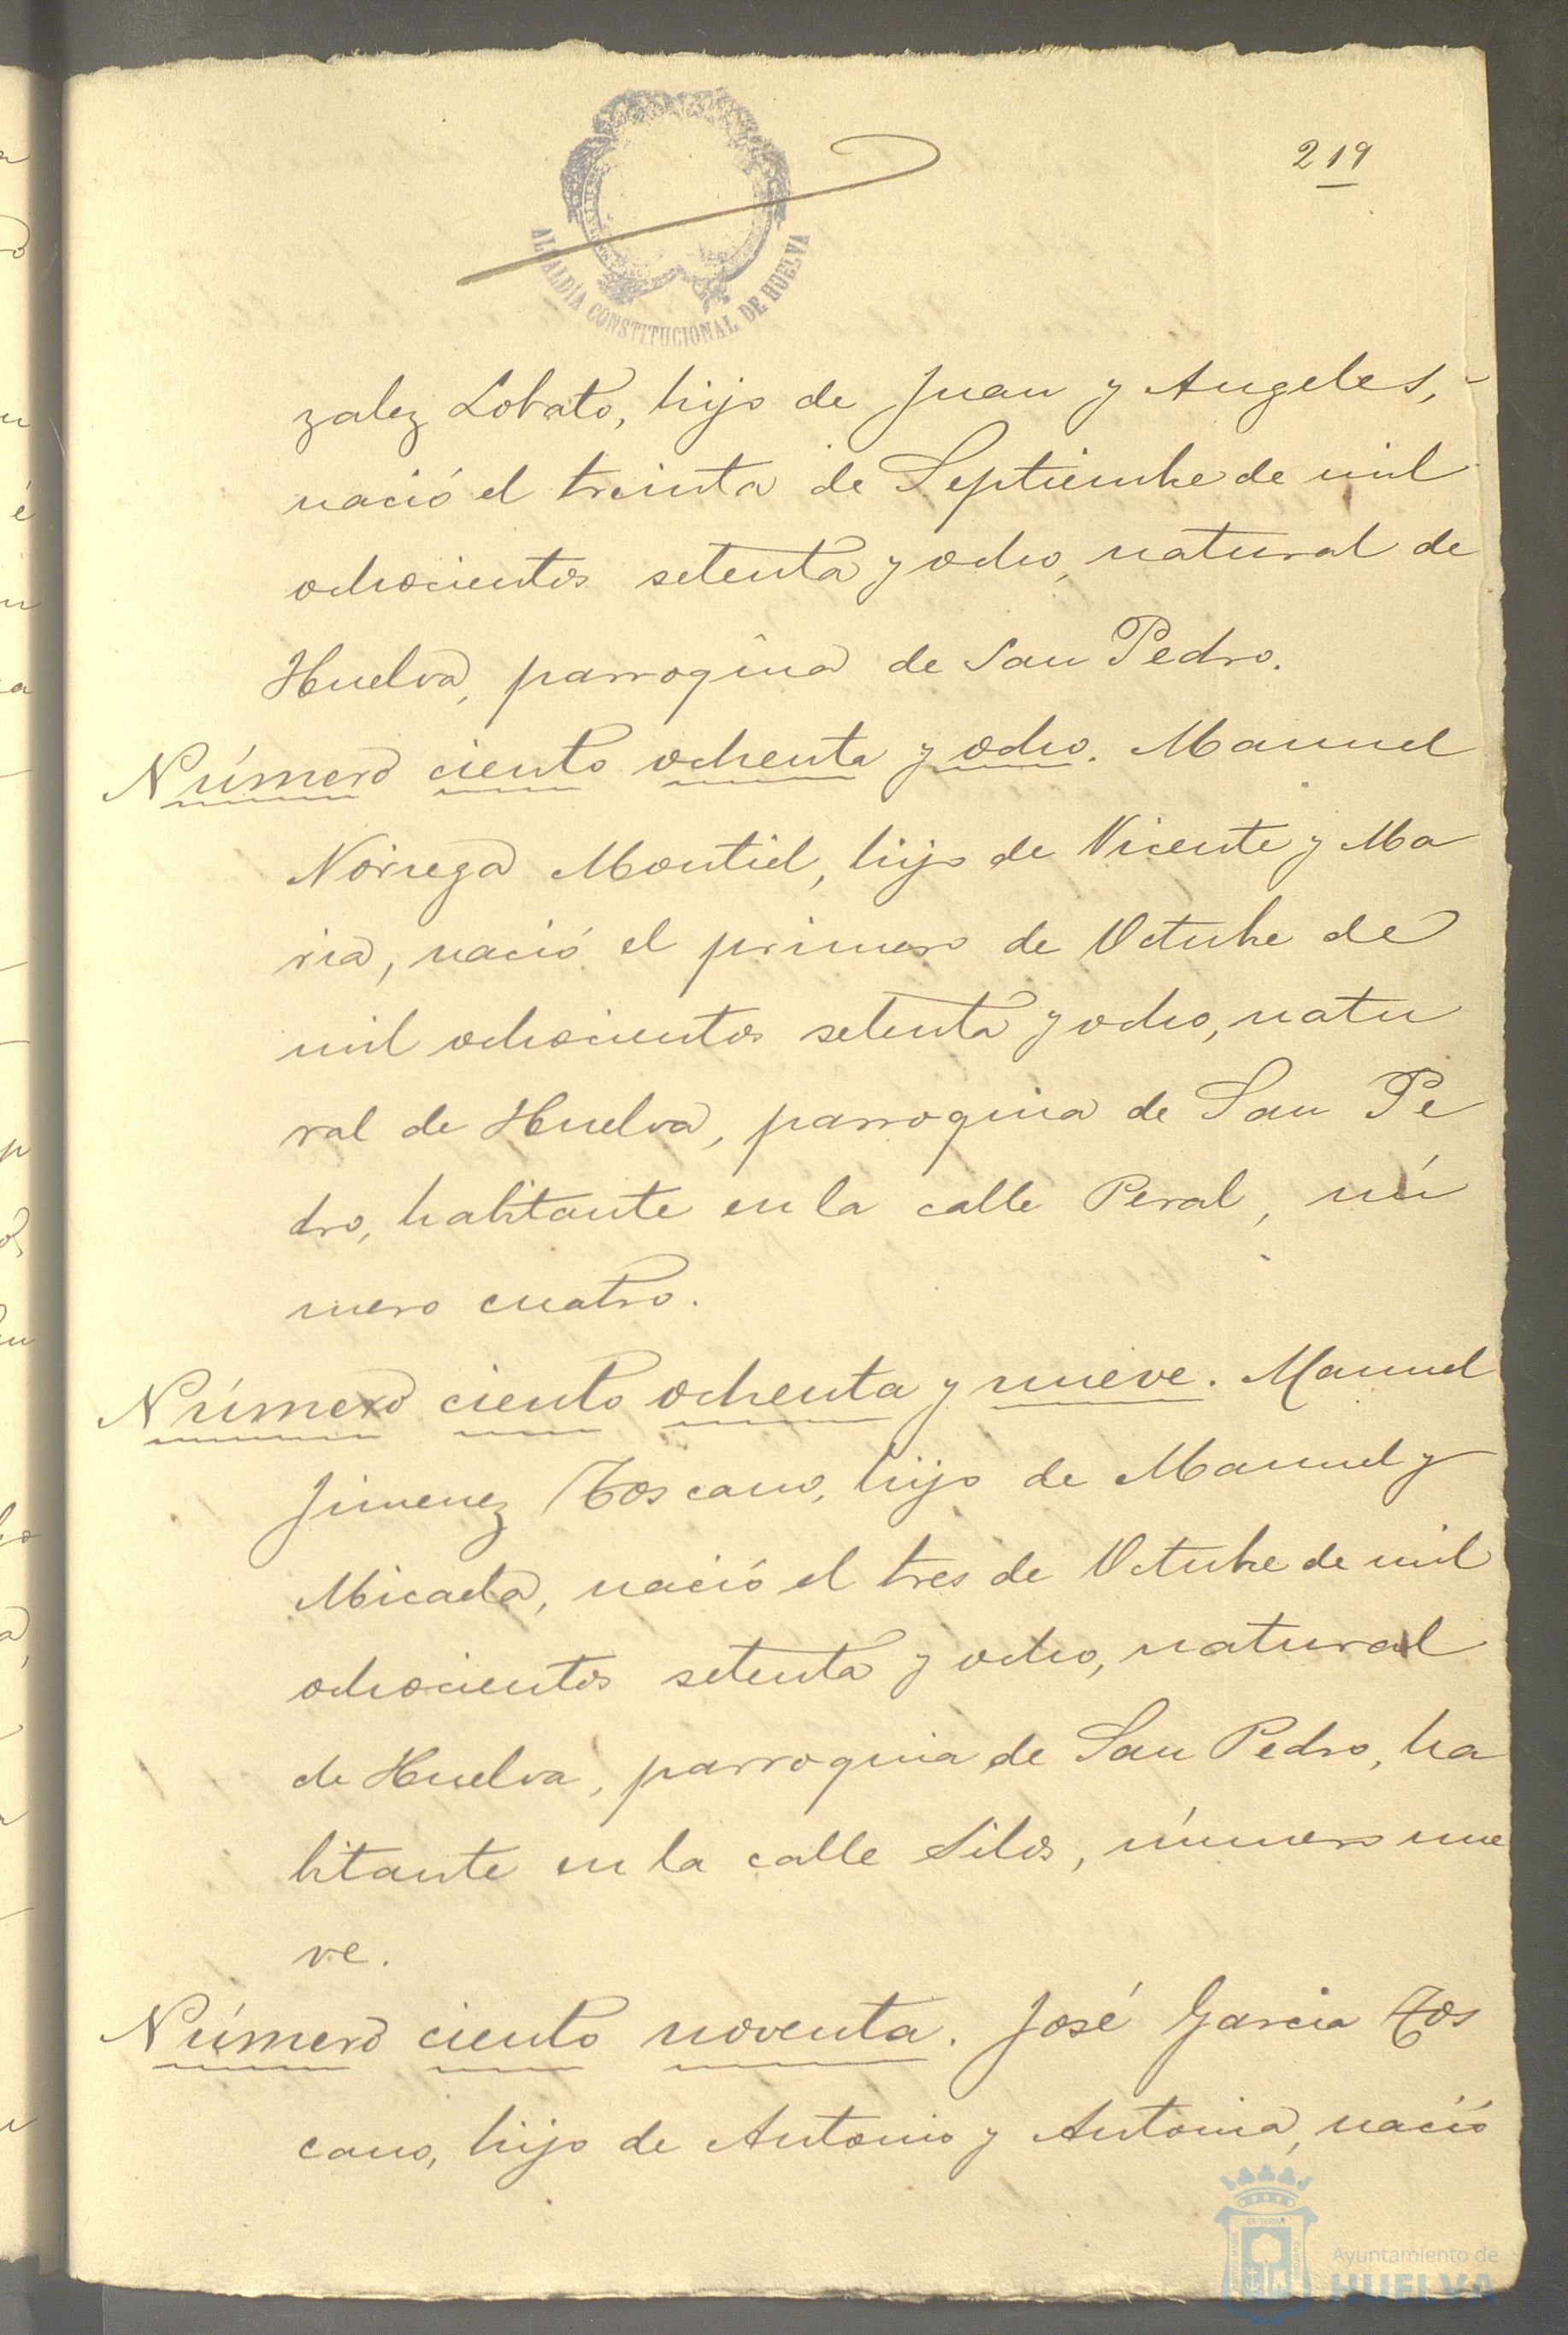 219
ALCALDÍA CONSTITUCIONAL DE HUELVA
zalez Lobato, hijo de Juan y Angeles,
nació el treinta de Septiembre de mil
ochocientos setenta y ocho, natural de
Huelva, parroquia de San Pedro.
Número ciento ochenta y ocho. Manuel
Noriega Montiel, hijo de Vicente y Ma
ria, nació el primero de Octubre de
mil ochocientos setenta y ocho, natu
ral de Huelva, parroquia de San Pe
dro, habitante en la calle Peral, nú
mero cuatro.
Número ciento ochenta y nueve. Manuel
Jimenez Toscano, hijo de Manuel y
Micaela, nació el tres de Octubre de mil
ochocientos setenta y ocho, natural
de Huelva, parroquia de San Pedro, ha
bitante en la calle Silos, número nue
ve.
Número ciento noventa. José Garcia Tos
cano, hijo de Antonio y Antonia, nació
Ayuntamiento de
HUELVA